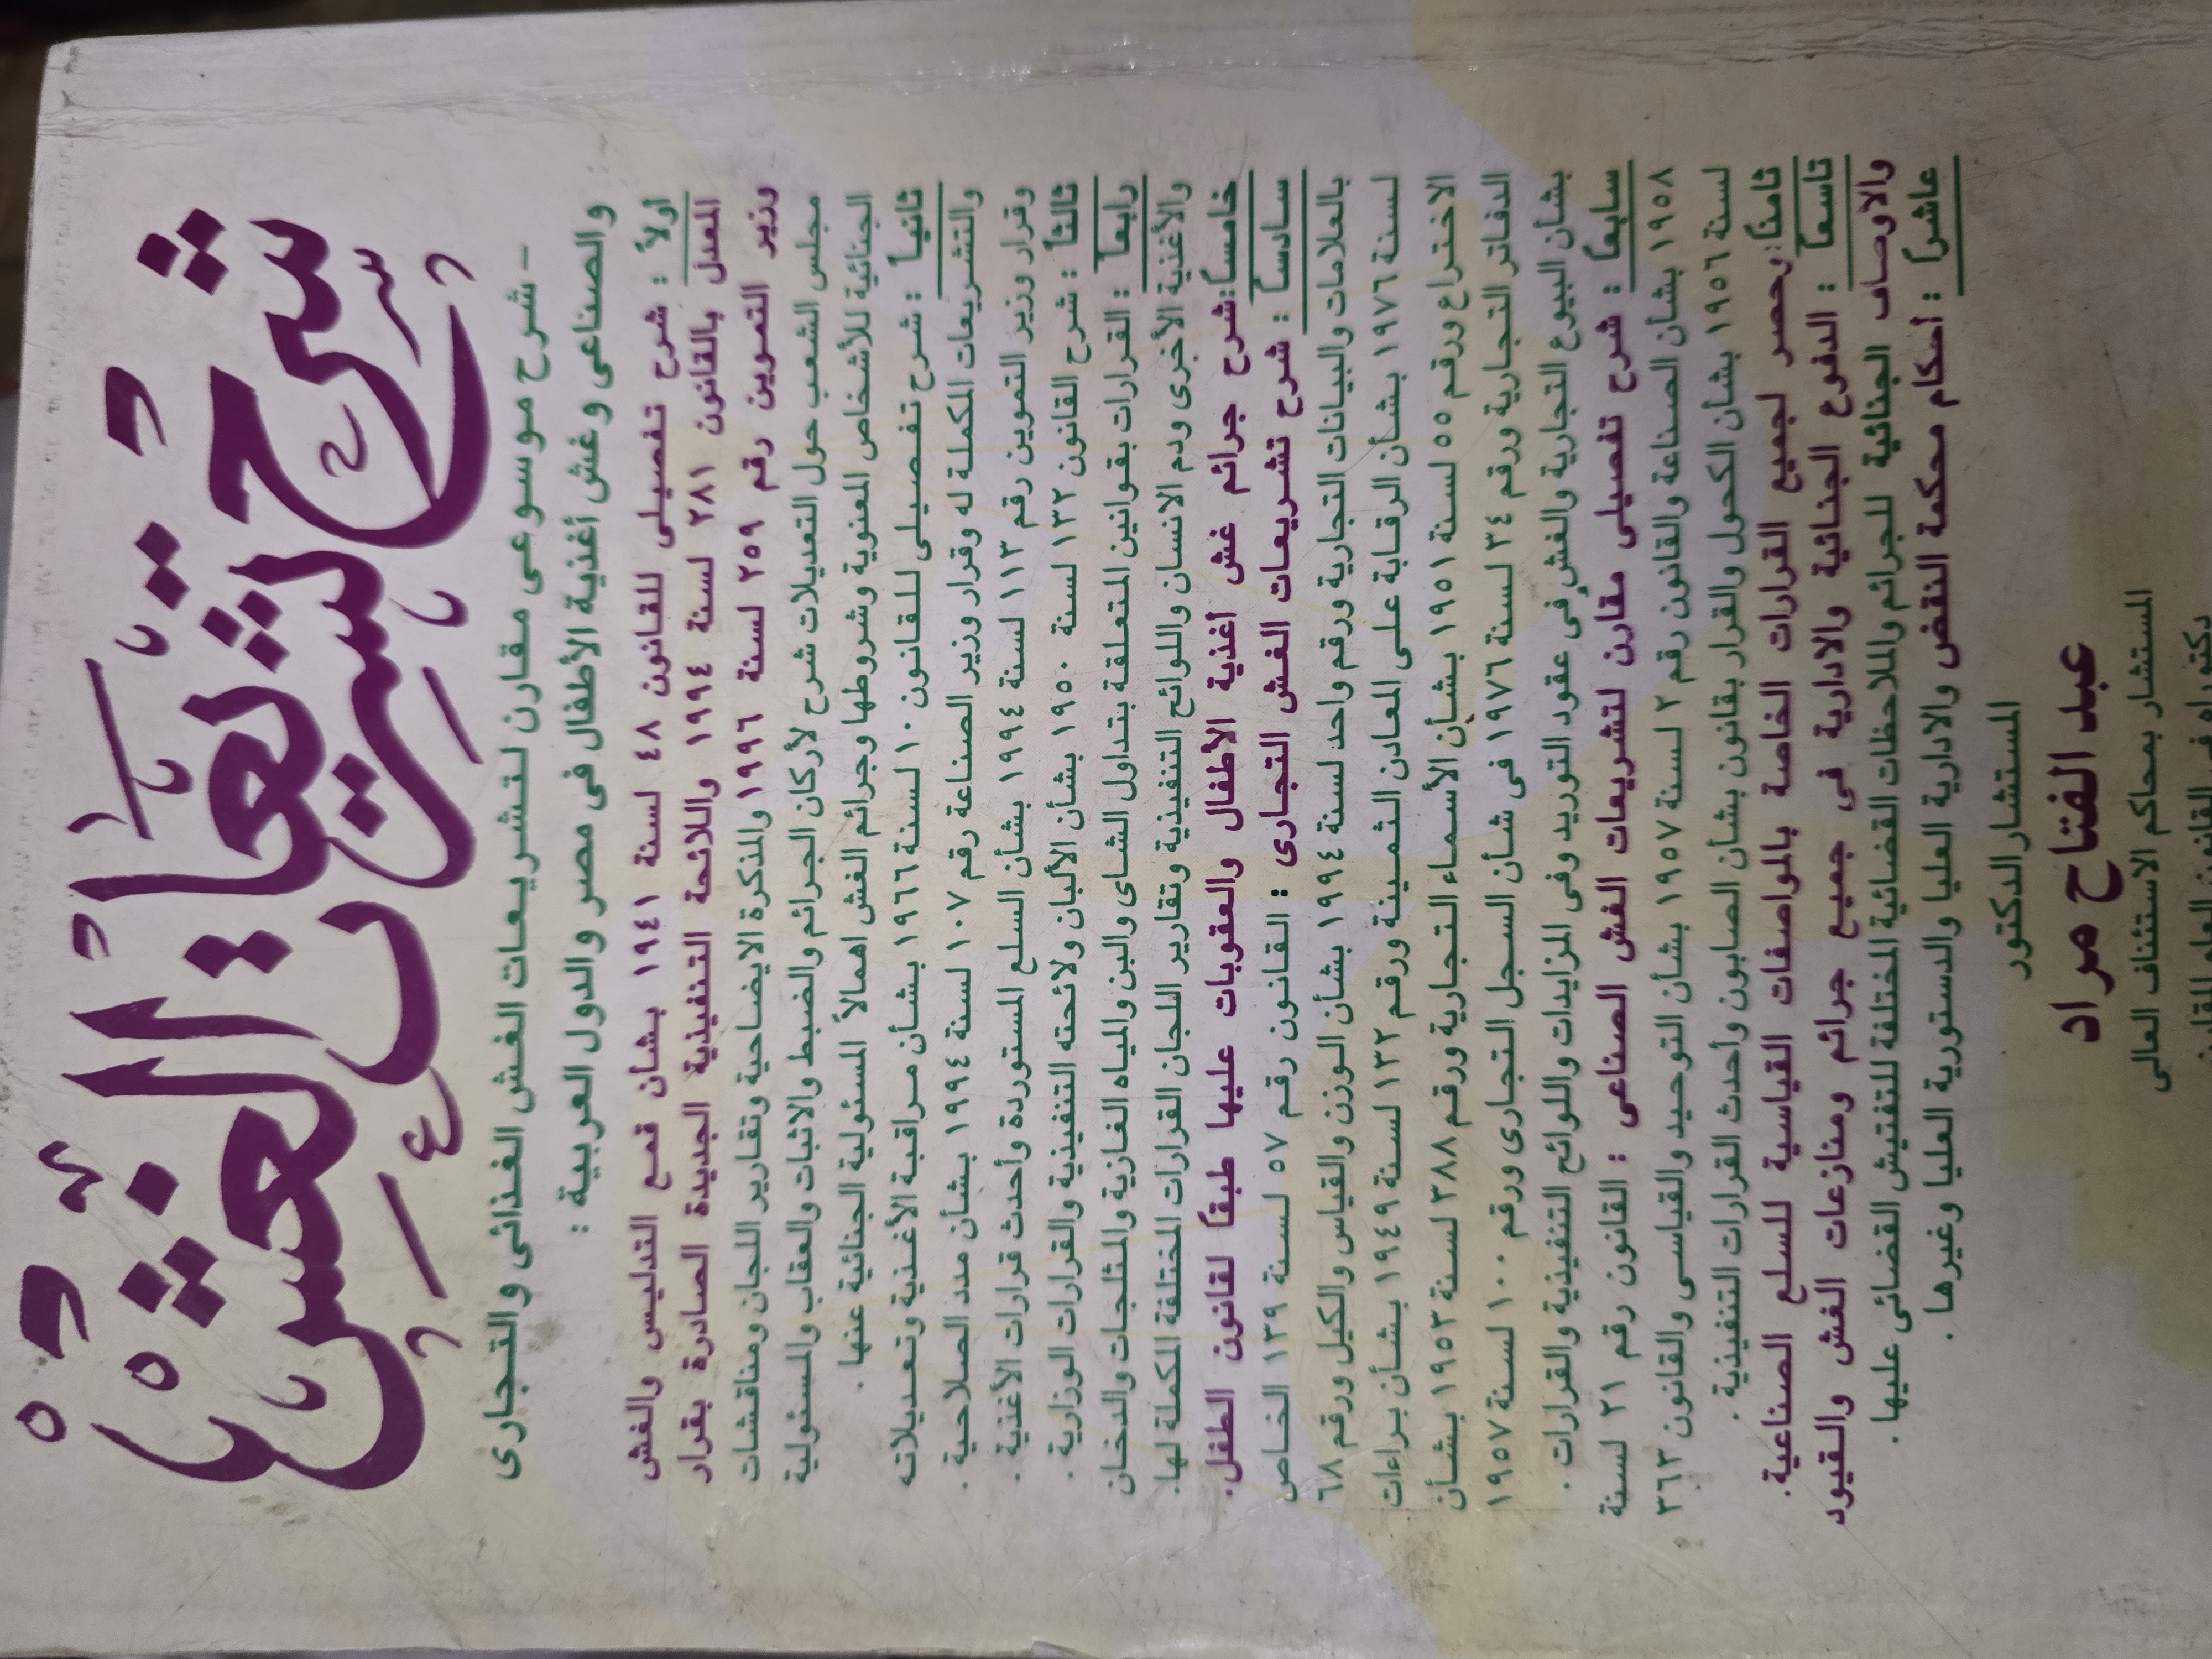 شرح تشريعات الغش
- شرح موسوعى مقارن لتشريعات الغش الغذائى والتجارى
والصناعى وغش أغذية الأطفال فى مصر والدول العربية :
أولاً : شرح تفصيلى للقانون ٤٨ لسنة ١٩٤١ بشأن قمع التدليس والغش
المعدل بالقانون ٢٨١ لسنة ١٩٩٤ واللائحة التنفيذية الجديدة الصادرة بقرار
وزير التموين رقم ٢٥٩ لسنة ١٩٩٦ والمذكرة الايضاحية وتقارير اللجان ومناقشات
مجلس الشعب حول التعديلات شرح لأركان الجرائم والضبط والاثبات والعقاب والمسئولية
الجنائية للأشخاص المعنوية وشروطها وجرائم الغش اهمالاً المسئولية الجنائية عنها .
ثانياً : شرح تفصيلى للقانون ١٠ لسنة ١٩٦٦ بشأن مراقبة الأغذية وتعديلاته
والتشريعات المكملة له وقرار وزير الصناعة رقم ١٠٧ لسنة ١٩٩٤ بشأن مدد الصلاحية .
وقرار وزير التموين رقم ١١٣ لسنة ١٩٩٤ بشأن السلع المستوردة وأحدث قرارات الأغذية .
ثالثاً : شرح القانون ١٣٢ لسنة ١٩٥٠ بشأن الألبان ولائحته التنفيذية والقرارات الوزارية .
رابعاً : القرارات بقوانين المتعلقة بتداول الشاى والبن والمياه الغازية والمثلجات والدخان
والأغذية الأخرى ودم الانسان واللوائح التنفيذية وتقارير اللجان القرارات المختلفة المكملة لها.
خامساً: شرح جرائم غش أغذية الأطفال والعقوبات عليها طبقاً لقانون الطفل.
سادساً : شرح تشريعات الغش التجارى : القانون رقم ٥٧ لسنة ١٣٩ الخاص
بالعلامات والبيانات التجارية ورقم واحد لسنة ١٩٩٤ بشأن الوزن والقياس والكيل ورقم ٦٨
لسنة ١٩٧٦ بشأن الرقابة على المعادن الثمينة ورقم ١٣٢ لسنة ١٩٤٩ بشأن براءات
الاختراع ورقم ٥٥ لسنة ١٩٥١ بشأن الأسماء التجارية ورقم ٣٨٨ لسنة ١٩٥٣ بشأن
الدفاتر التجارية ورقم ٣٤ لسنة ١٩٧٦ فى شأن السجل التجارى ورقم ١٠٠ لسنة ١٩٥٧
بشأن البيوع التجارية والغش فى عقود التوريد وفى المزايدات واللوائح التنفيذية والقرارات .
سابعاً : شرح تفصيلى مقارن لتشريعات الغش الصناعى : القانون رقم ٢١ لسنة
١٩٥٨ بشأن الصناعة والقانون رقم ٢ لسنة ١٩٥٧ بشأن التوحيد والقياسى والقانون ٣٦٣
لسنة ١٩٥٦ بشأن الكحول والقرار بقانون بشأن الصابون وأحدث القرارات التنفيذية .
ثامناً: وحصر لجميع القرارات الخاصة بالمواصفات القياسية للسلع الصناعية.
تاسعاً : الدفوع الجنائية والادارية فى جميع جرائم ومنازعات الغش والقيود
والأوصاف الجنائية للجرائم والملاحظات القضائية المختلفة للتفتيش القضائى عليها.
عاشراً : أحكام محكمة النقض والادارية العليا والدستورية العليا وغيرها .
المستشار الدكتور
عبد الفتاح مراد
المستشار بمحاكم الاستئناف العالى